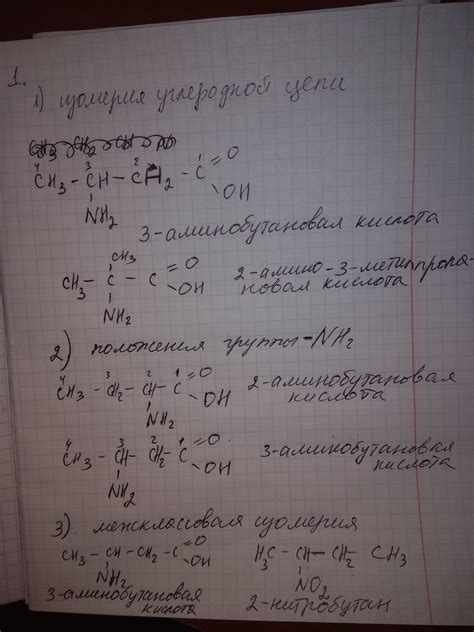 1.
1) изомерия углеродной цепи
4 3 2 1
CH3 - CH - CH2 - C = O
OH
NH2
3-аминобутановая кислота
CH3
CH3 - C - C = O
OH
NH2
2-амино-3-метилпропа-
новая кислота
2) положения группы -NH2
4 3 2 1
CH3 - CH2 - CH - C = O
OH
NH2
2-аминобутановая
кислота
4 3 2 1
CH3 - CH - CH2 - C = O
OH
NH2
3-аминобутановая
кислота
3) межклассовая изомерия
CH3 - CH - CH2 - C = O
OH
NH2
3-аминобутановая
кислота
H3C - CH - CH2 - CH3
NO2
2-нитробутан